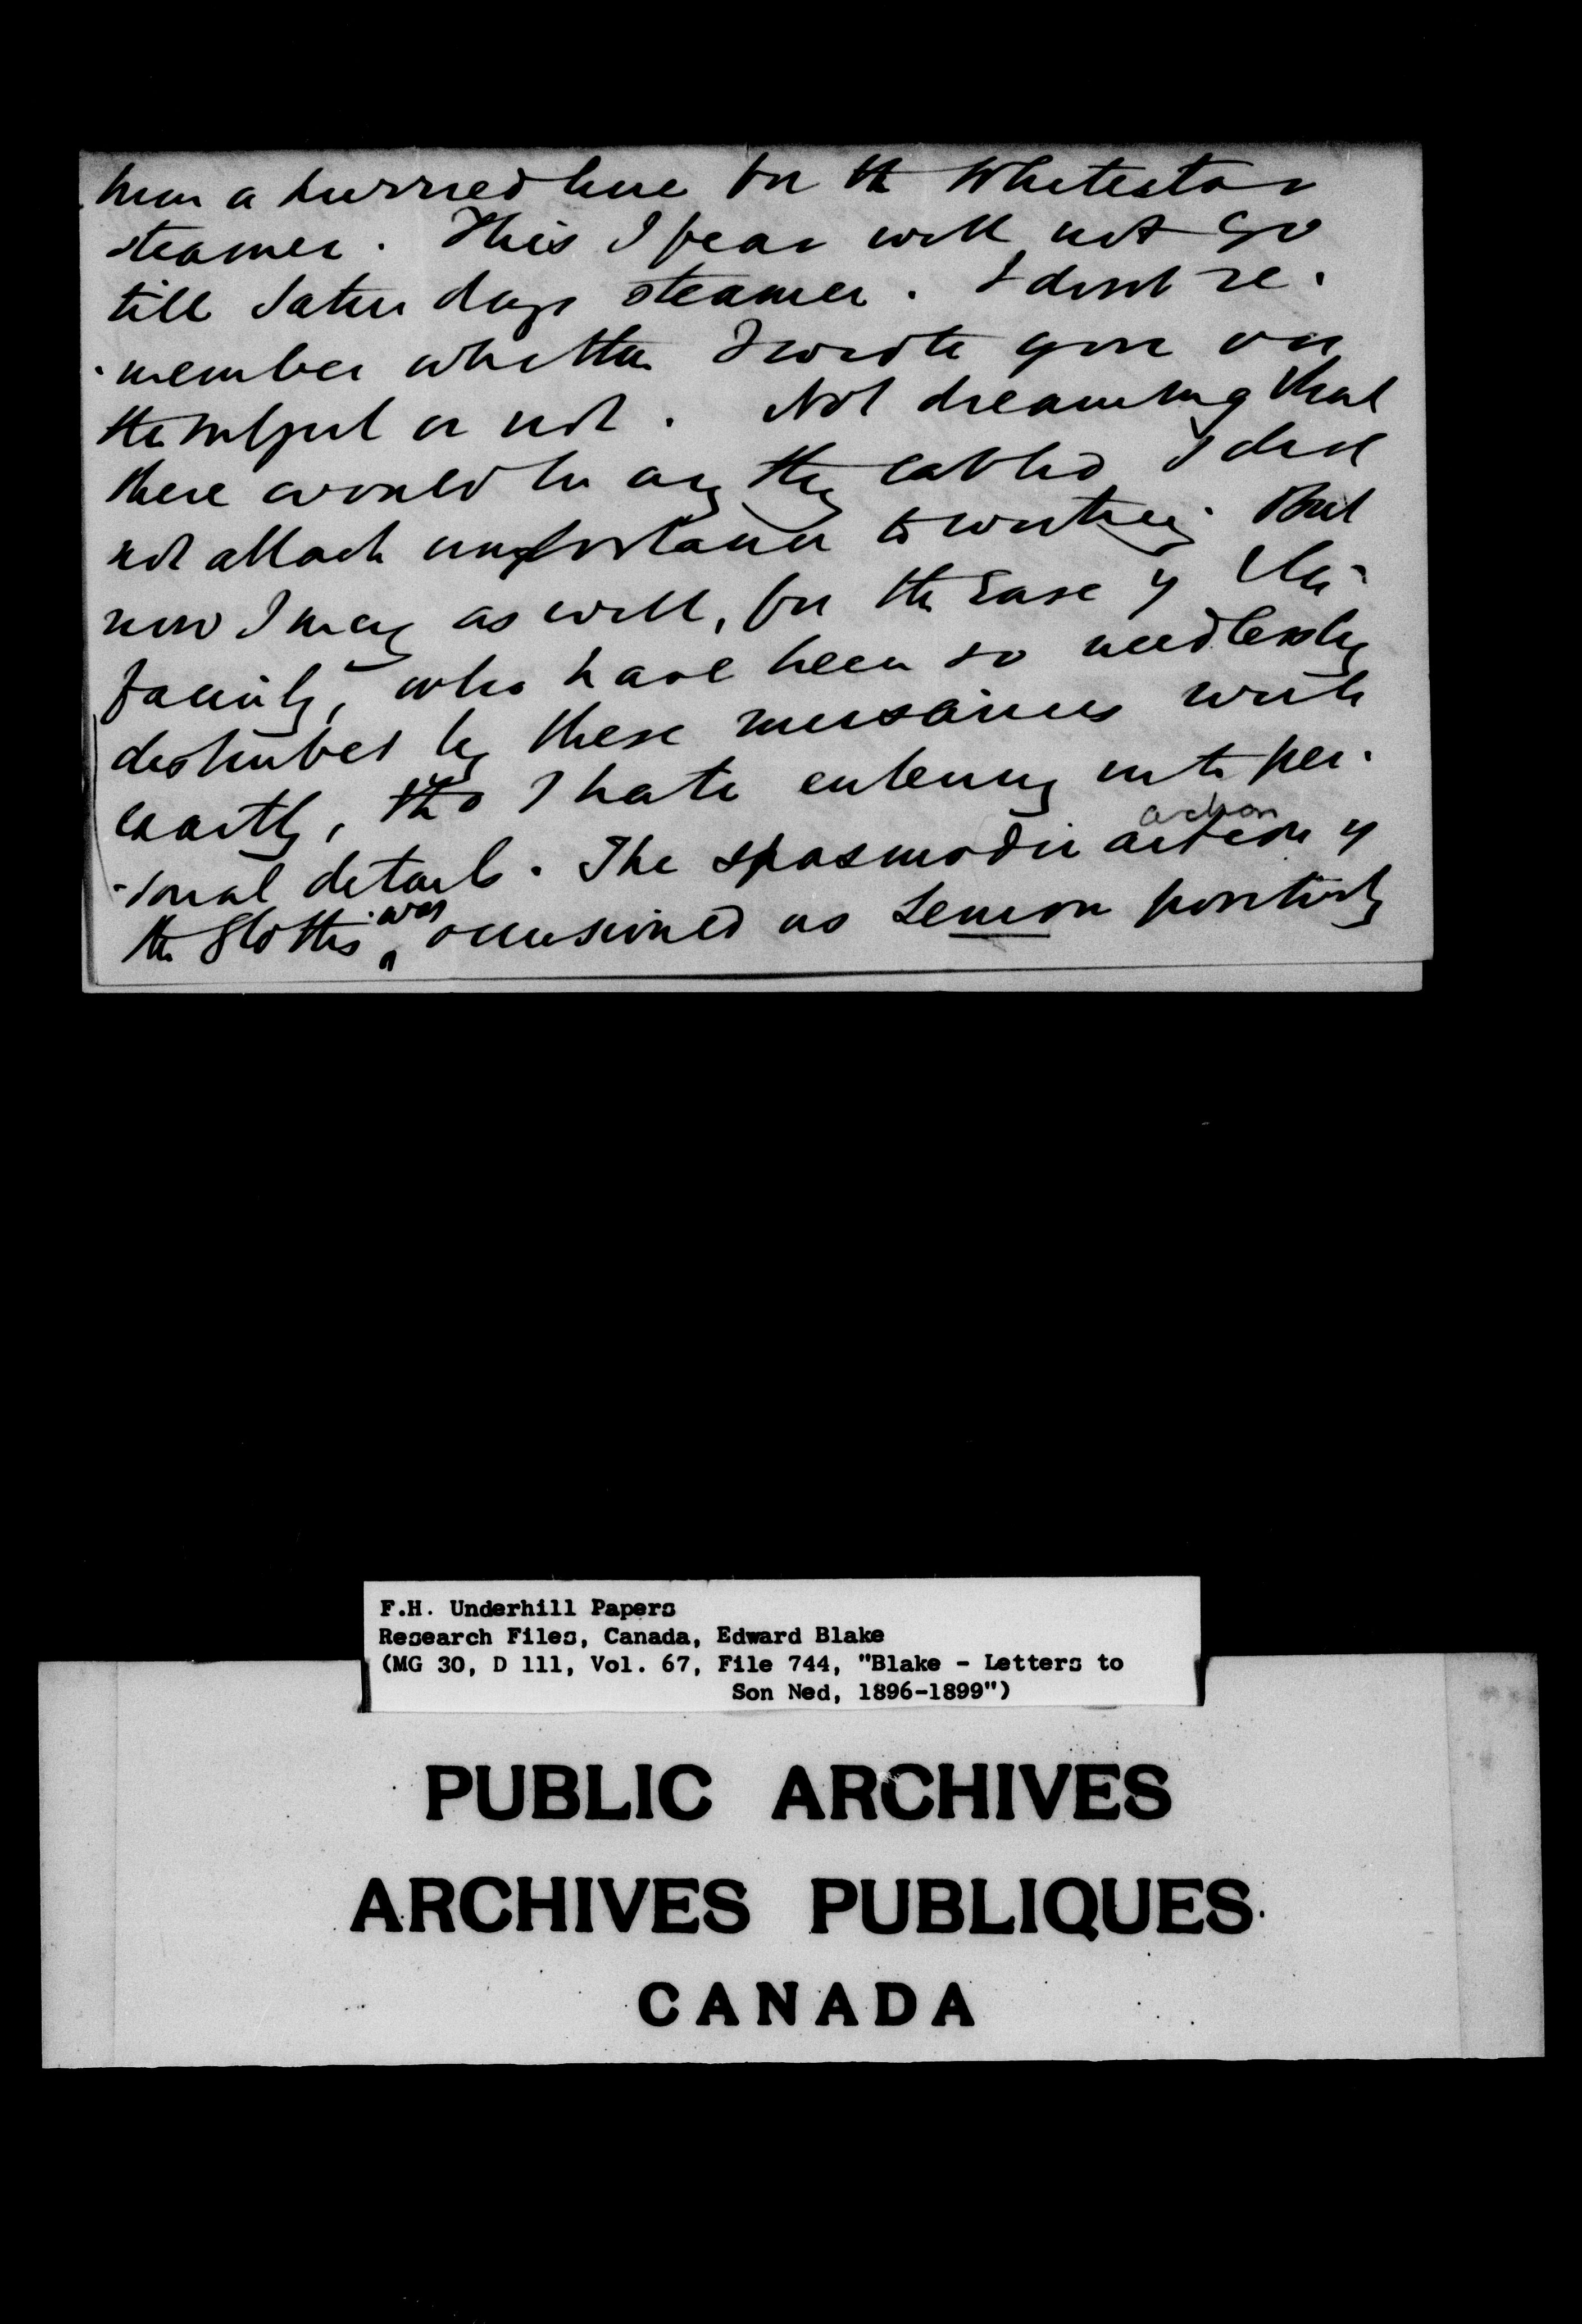 him a hurried line for the Whitestar
steamer. This I fear will not go
till Saturdays steamer. I dont re-
-member whether I wrote you on
the subject or not. Not dreaming that
there would be any thing cabled I did
not attach importance to writing. But
now I may as well, for the ease of the
family, who have been so needlessly
disturbed by these nuisances write
exactly, tho I hate entering into per-
-sonal details. The spasmodic action of
action
the glottis was occasioned as Semon positively
F.H. Underhill Papers
Research Files, Canada, Edward Blake
(MG 30, D 111, Vol. 67, File 744, "Blake - Letters to
Son Ned, 1896-1899")
PUBLIC ARCHIVES
ARCHIVES PUBLIQUES
CANADA